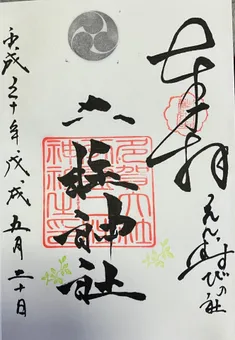 奉拝
えんむすびの社
六
神社
平成三十年戊戌五月二十日